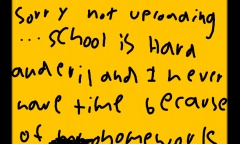 Sorry not uploading
...school is Hard
and evil and I never
have time because
of homework